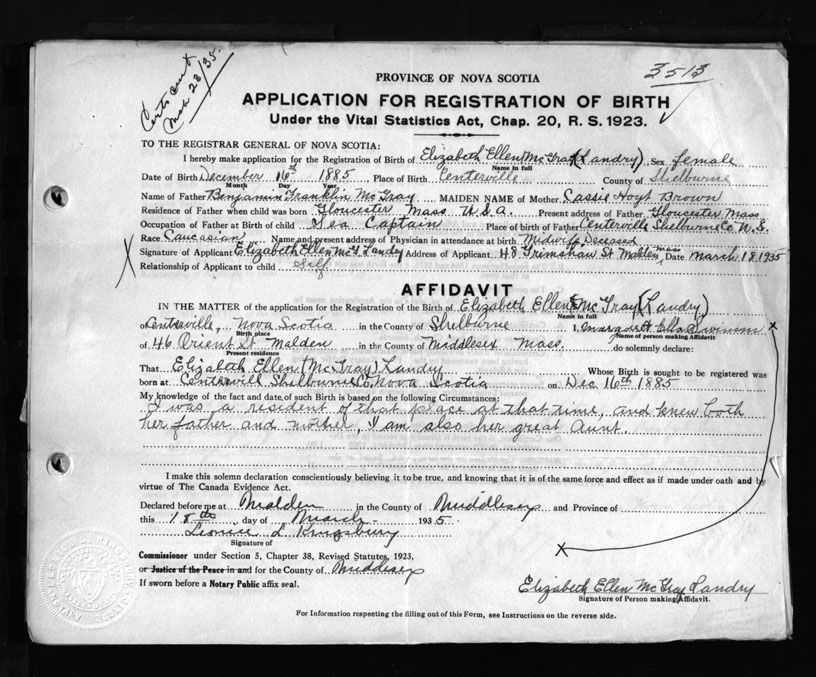 Certs sent
Mch 23/35.
3513
PROVINCE OF NOVA SCOTIA
APPLICATION FOR REGISTRATION OF BIRTH
Under the Vital Statistics Act, Chap. 20, R. S. 1923.
TO THE REGISTRAR GENERAL OF NOVA SCOTIA:
I hereby make application for the Registration of Birth of Elizabeth Ellen McGray (Landry) Sex female
Name in full
Date of Birth December 16th 1885 Place of Birth Centerville County of Shelburne
Month Day Year
Name of Father Benjamin Franklin McGray MAIDEN NAME of Mother Cassie Hoyt Brown
Residence of Father when child was born Gloucester Mass U.S.A. Present address of Father Gloucester Mass
Occupation of Father at Birth of child Sea Captain Place of birth of Father Centerville Shelburne Co N.S.
Race Caucasian Name and present address of Physician in attendance at birth Midwife Deceased
Signature of Applicant Elizabeth Ellen McG Landry Address of Applicant 48 Grimshaw St Malden Mass Date March 18 1935
Relationship of Applicant to child Self
AFFIDAVIT
IN THE MATTER of the application for the Registration of the Birth of Elizabeth Ellen McGray (Landry)
Name in full
Centerville, Nova Scotia in the County of Shelburne I, Margaret Ella
Birth place Name of person making Affidavit
of 46 Orient St Malden in the County of Middlesex Mass. do solemnly declare:
Present residence
That Elizabeth Ellen (McGray) Landry Whose Birth is sought to be registered was
born at Centervill Shelburne Co. Nova Scotia on Dec 16th 1885
My knowledge of the fact and date of such Birth is based on the following Circumstances:
I was a resident of that place at that time, and knew both
her father and mother, I am also her great Aunt.
I make this solemn declaration conscientiously believing it to be true, and knowing that it is of the same force and effect as if made under oath and by
virtue of The Canada Evidence Act.
Declared before me at Malden in the County of Middlesex and Province of
this 18th day of March 1935.
L Kingsbury
Signature of
Commissioner under Section 5, Chapter 38, Revised Statutes, 1923,
or Justice of the Peace in and for the County of Middlesex
If sworn before a Notary Public affix seal.
Elizabeth Ellen McGray Landry
Signature of Person making Affidavit.
For Information respecting the filling out of this Form, see Instructions on the reverse side.